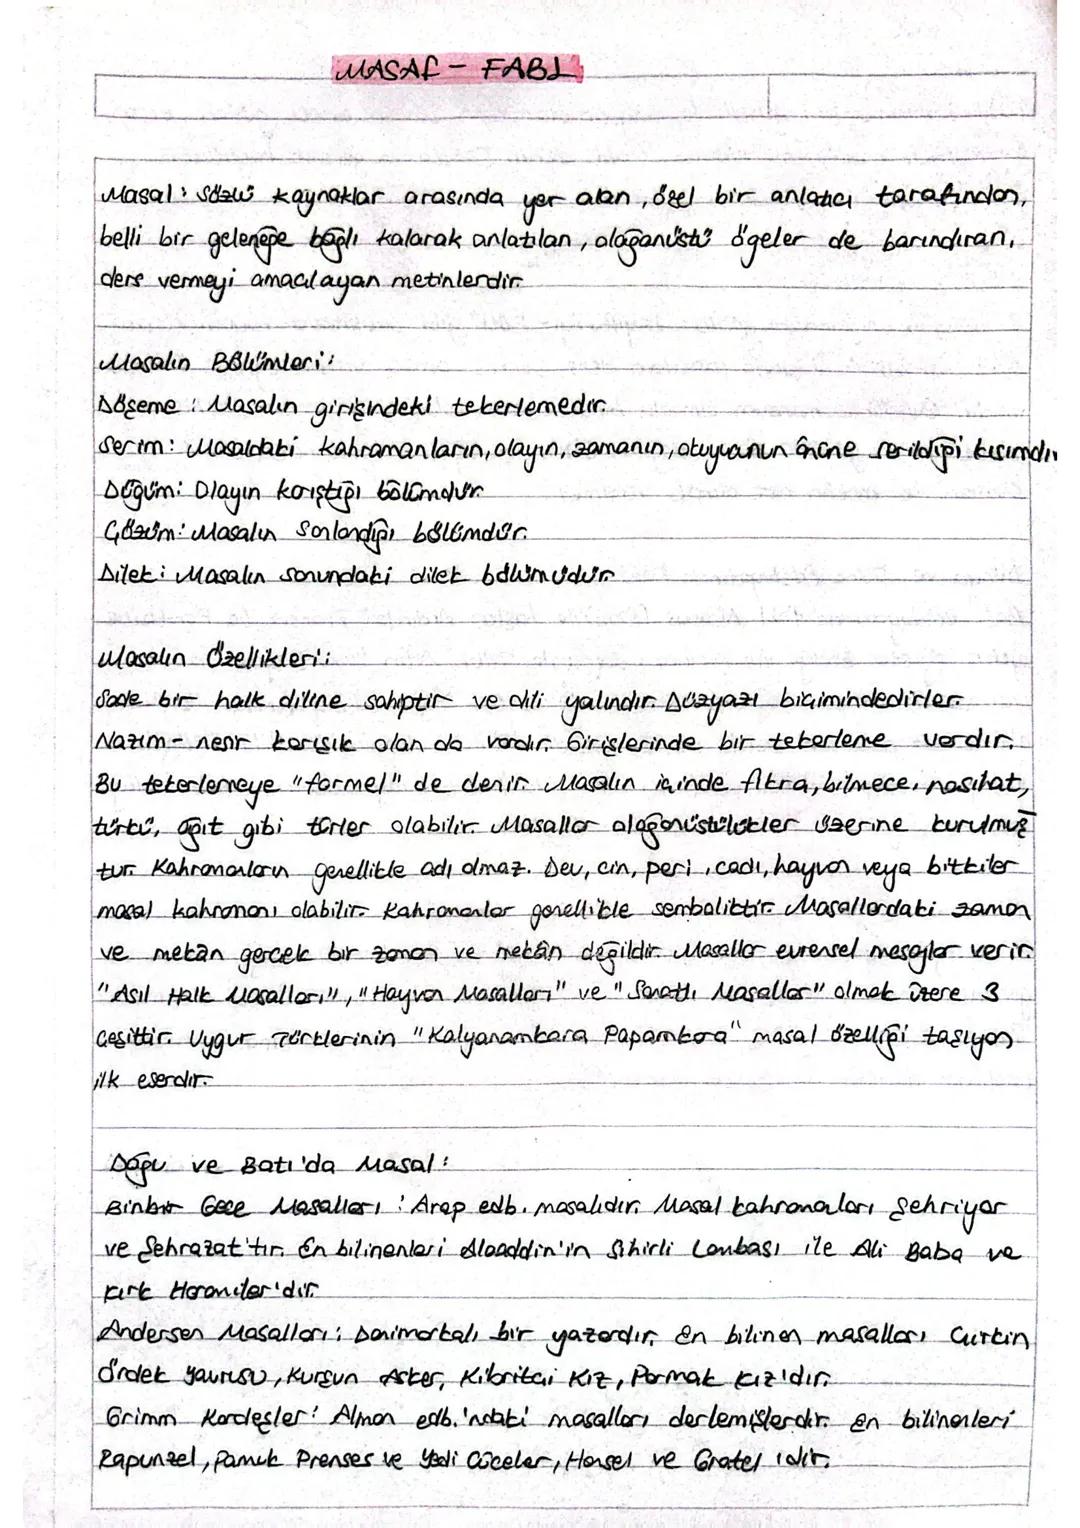 MASAL - FABL
Masal: Sözlü kaynaklar arasında yer alan, özel bir anlatıcı tarafından,
belli bir geleneğe bağlı kalarak anlatılan, olağanüstü öğeler de barındıran,
ders vermeyi amacılayan metinlerdir.
Masalın Bölümleri:
Döşeme: Masalın girişindeki tekerlemedir.
Serim: Masaldaki kahramanların, olayın, zamanın, okuyucunun önüne serildiği kısımdır
Düğüm: Olayın karıştığı bölümdür.
Çözüm: Masalın sonlandığı bölümdür.
Dilek: Masalın sonundaki dilek bölümüdür.
Masalın Özellikleri:
Sade bir halk diline sahiptir ve dili yalındır. Düzyazı biçimindedirler.
Nazım-nesir karışık olan da vardır. Girişlerinde bir tekerleme vardır.
Bu tekerlemeye "formel" de denir. Masalın içinde fıkra, bilmece, nasihat,
türkü, ağıt gibi türler olabilir. Masallar olağanüstülükler üzerine kurulmuş
tur. Kahramanların genellikle adı olmaz. Dev, cin, peri, cadı, hayvan veya bitkiler
masal kahramanı olabilir. Kahramanlar genellikle semboliktir. Masallardaki zaman
ve mekân gerçek bir zaman ve mekân değildir. Masallar evrensel mesajlar verir.
"Asıl Halk Masalları", "Hayvan Masalları" ve "Sanatlı Masallar" olmak üzere 3
çeşittir. Uygur Türklerinin "Kalyanamkara Papamkara" masal özelliği taşıyan
ilk eserdir.
Doğu ve Batı'da Masal:
Binbir Gece Masalları: Arap edb. masalıdır. Masal kahramanları Şehriyar
ve Şehrazat'tır. En bilinenleri Alaaddin'in Sihirli Lambası ile Ali Baba ve
Kırk Haramiler'dir.
Andersen Masalları: Danimarkalı bir yazardır. En bilinen masalları Çirkin
Ördek Yavrusu, Kurşun Asker, Kibritçi Kız, Parmak Kız'dır.
Grimm Kardeşler: Alman edb.'ndaki masalları derlemişlerdir. En bilinenleri
Rapunzel, Pamuk Prenses ve Yedi Cüceler, Hansel ve Gratel'idir.